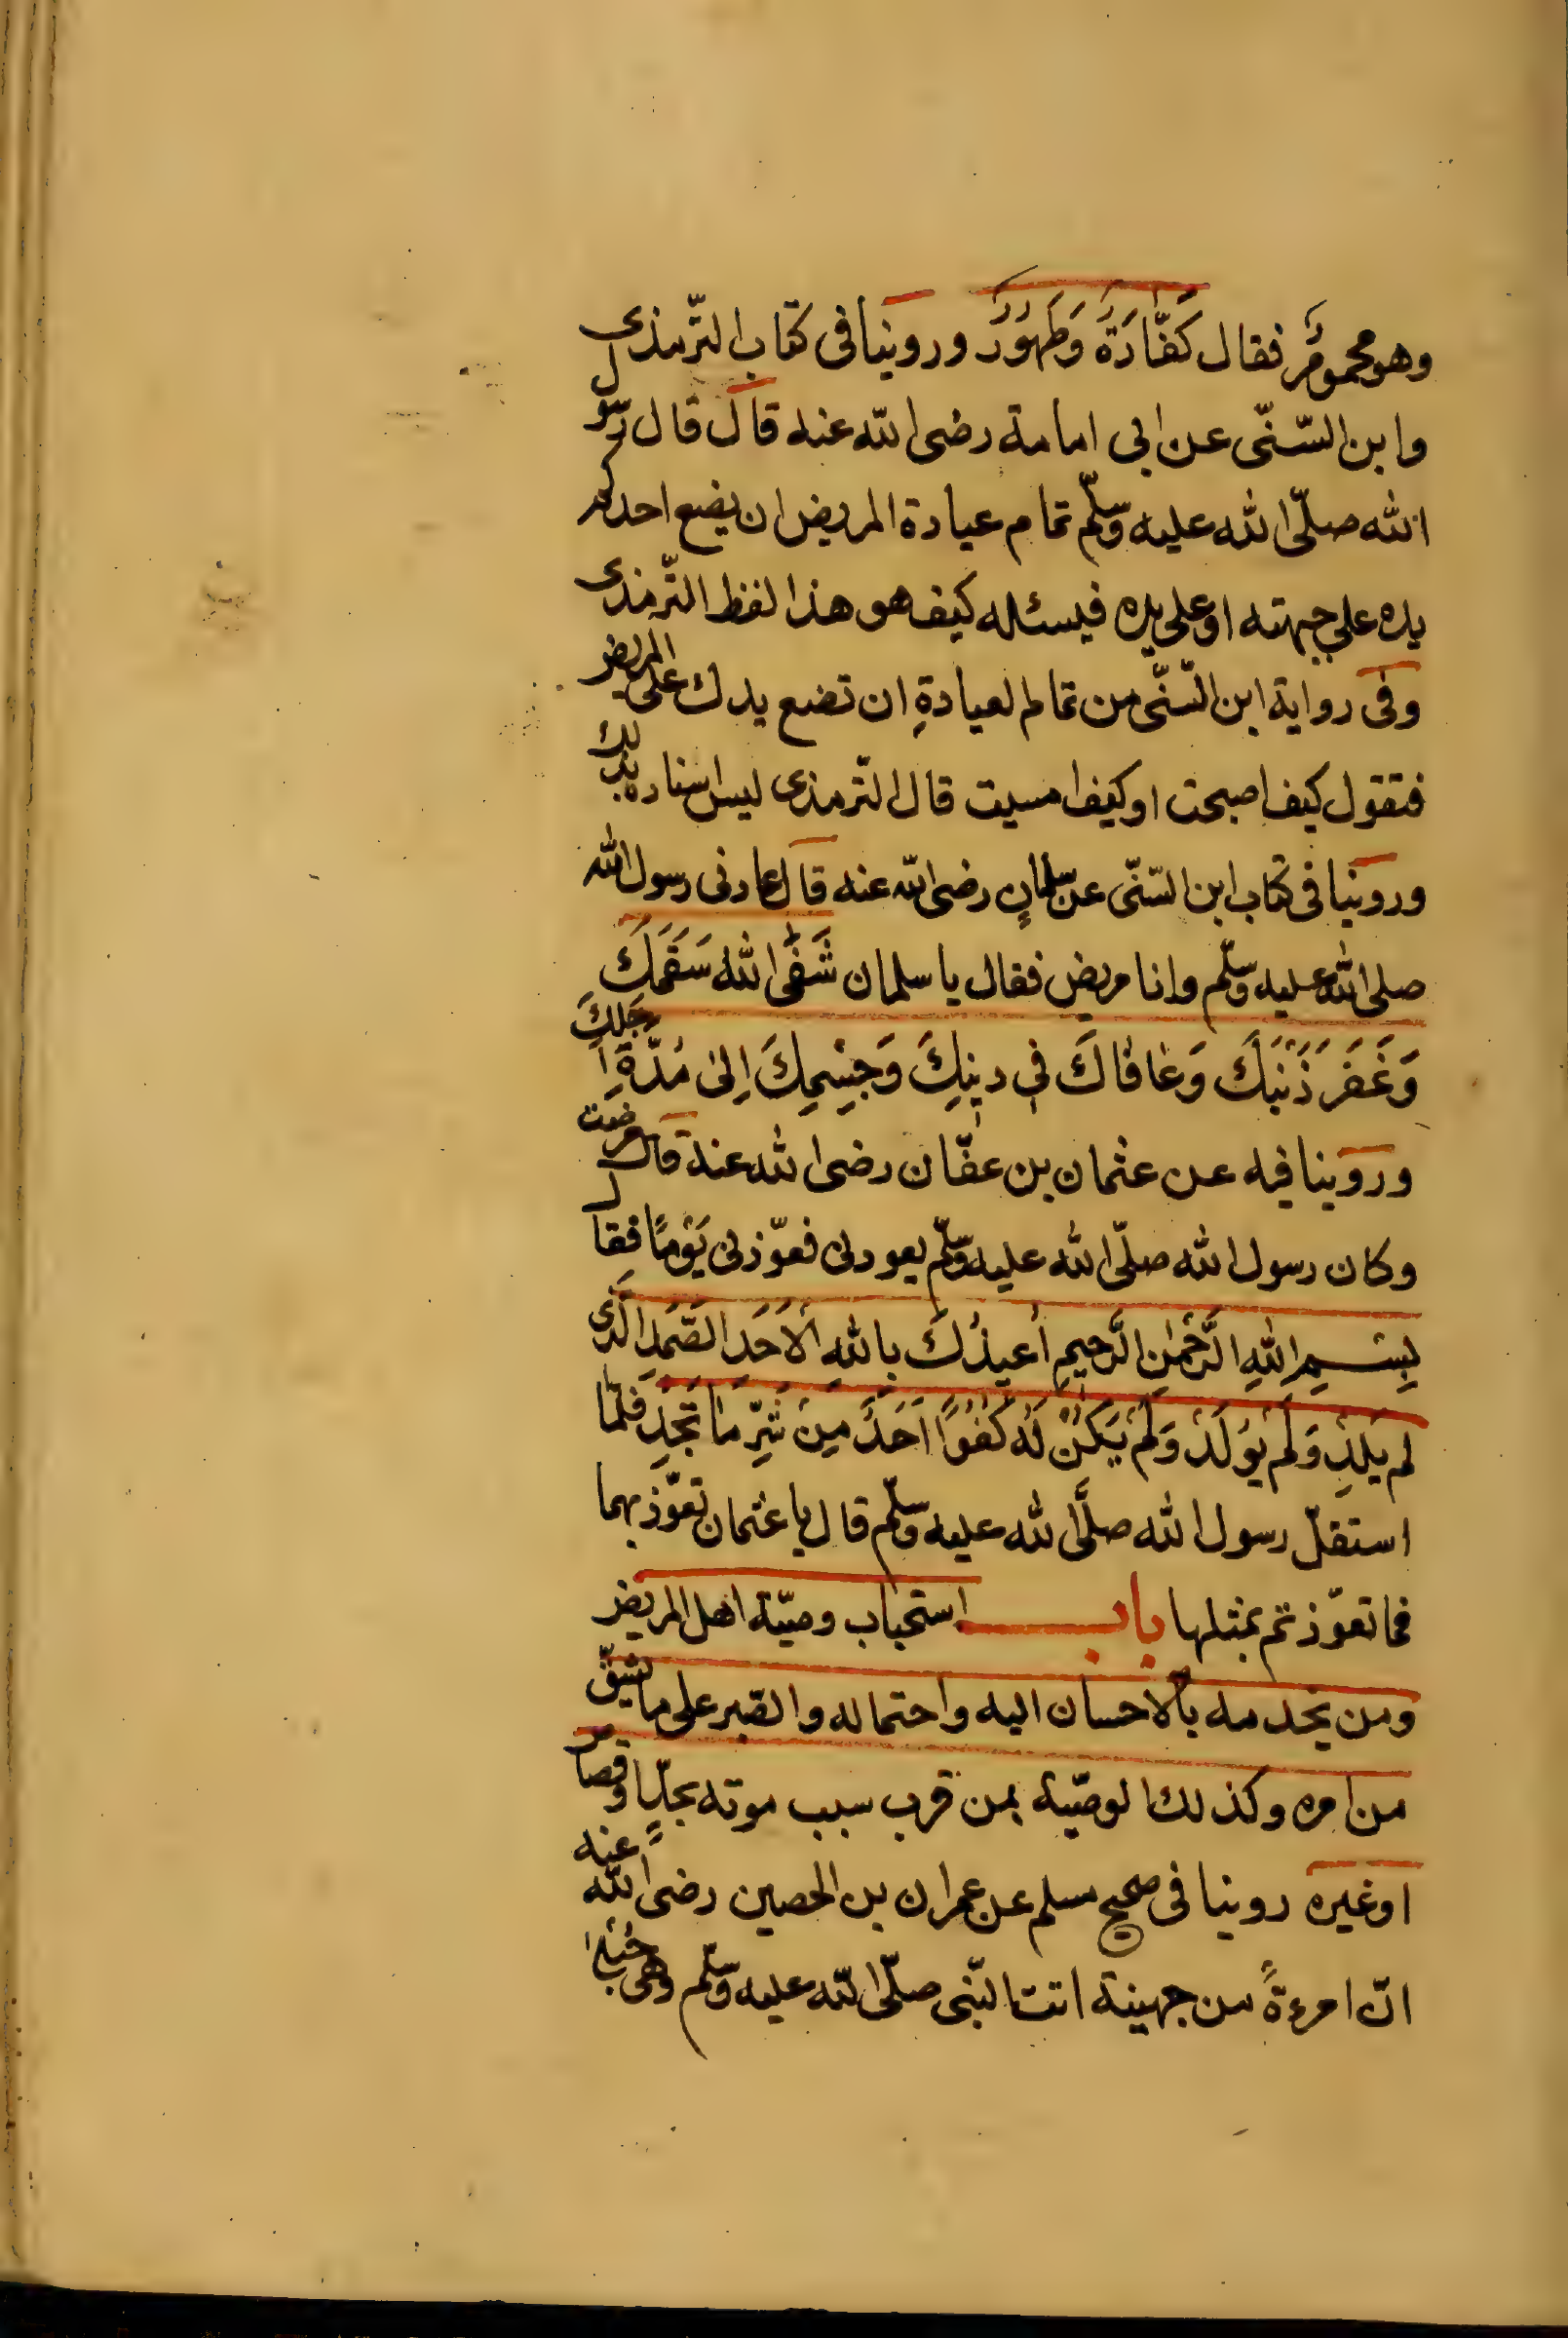 وهو محمومٌ فقال كَفَّارَةٌ وَطَهُورٌ وروينا فى كتاب الترّمذى
وابن السّنّى عن ابى امامة رضى الله عنه قال قال رسول
الله صلّى الله عليه وسلّم تمام عيادة المريض ان يضع احدكم
يده على جبهته او على يده فيسئله كيف هو هذا لفظ الترّمذى
وفى رواية ابن السّنّى من تمام العيادةِ ان تضع يدك على المريض
فتقول كيف اصبحت او كيف امسيت قال الترّمذى ليس اسناده بذلك
وروينا فى كتاب ابن السّنّى عن سلمانٍ رضى الله عنه قال عادنى رسول الله
صلى الله عليه وسلّم وانا مريض فقال يا سلمان شَفَى الله سَقَمَكَ
وَغَفَرَ ذَنْبَكَ وَعَافَاكَ فِى دِينِكَ وَجِسْمِكَ اِلىٰ مُدَّةِ اَجَلِكَ
وروينا فيه عن عثمان بن عفّان رضى الله عنه قال مرضت
وكان رسول الله صلّى الله عليه وسلّم يعودنى فعوّذنى يَوْمًا فقال
بِسْمِ اللهِ الرَّحْمٰنِ الرَّحِيمِ اُعِيذُكَ بِاللهِ الْاَحَدِ الصَّمَدِ الَّذِى
لم يَلِدْ وَلَمْ يُوْلَدْ وَلَمْ يَكُنْ لَهُ كُفُوًا اَحَدٌ مِنْ شَرِّ مَا تَجِدُ فلمّا
استقلّ رسول الله صلَّى الله عليه وسلّم قال يا عثمان تعوّذ بهما
فما تعوّذتم بمثلها باب استحباب وصيّة اهل المريض
ومن يخدمه بالاحسان اليه واحتماله والصّبر على ما يشقّ
من امره وكذلك الوصيّة بمن قرب سبب موته بحدٍّ او قصاص
او غيره روينا فى صحيح مسلم عن عمران بن الحصين رضى الله عنه
انّ امرءةً من جهينة اتت النّبى صلّى الله عليه وسلّم وهى حُبْلىٰ